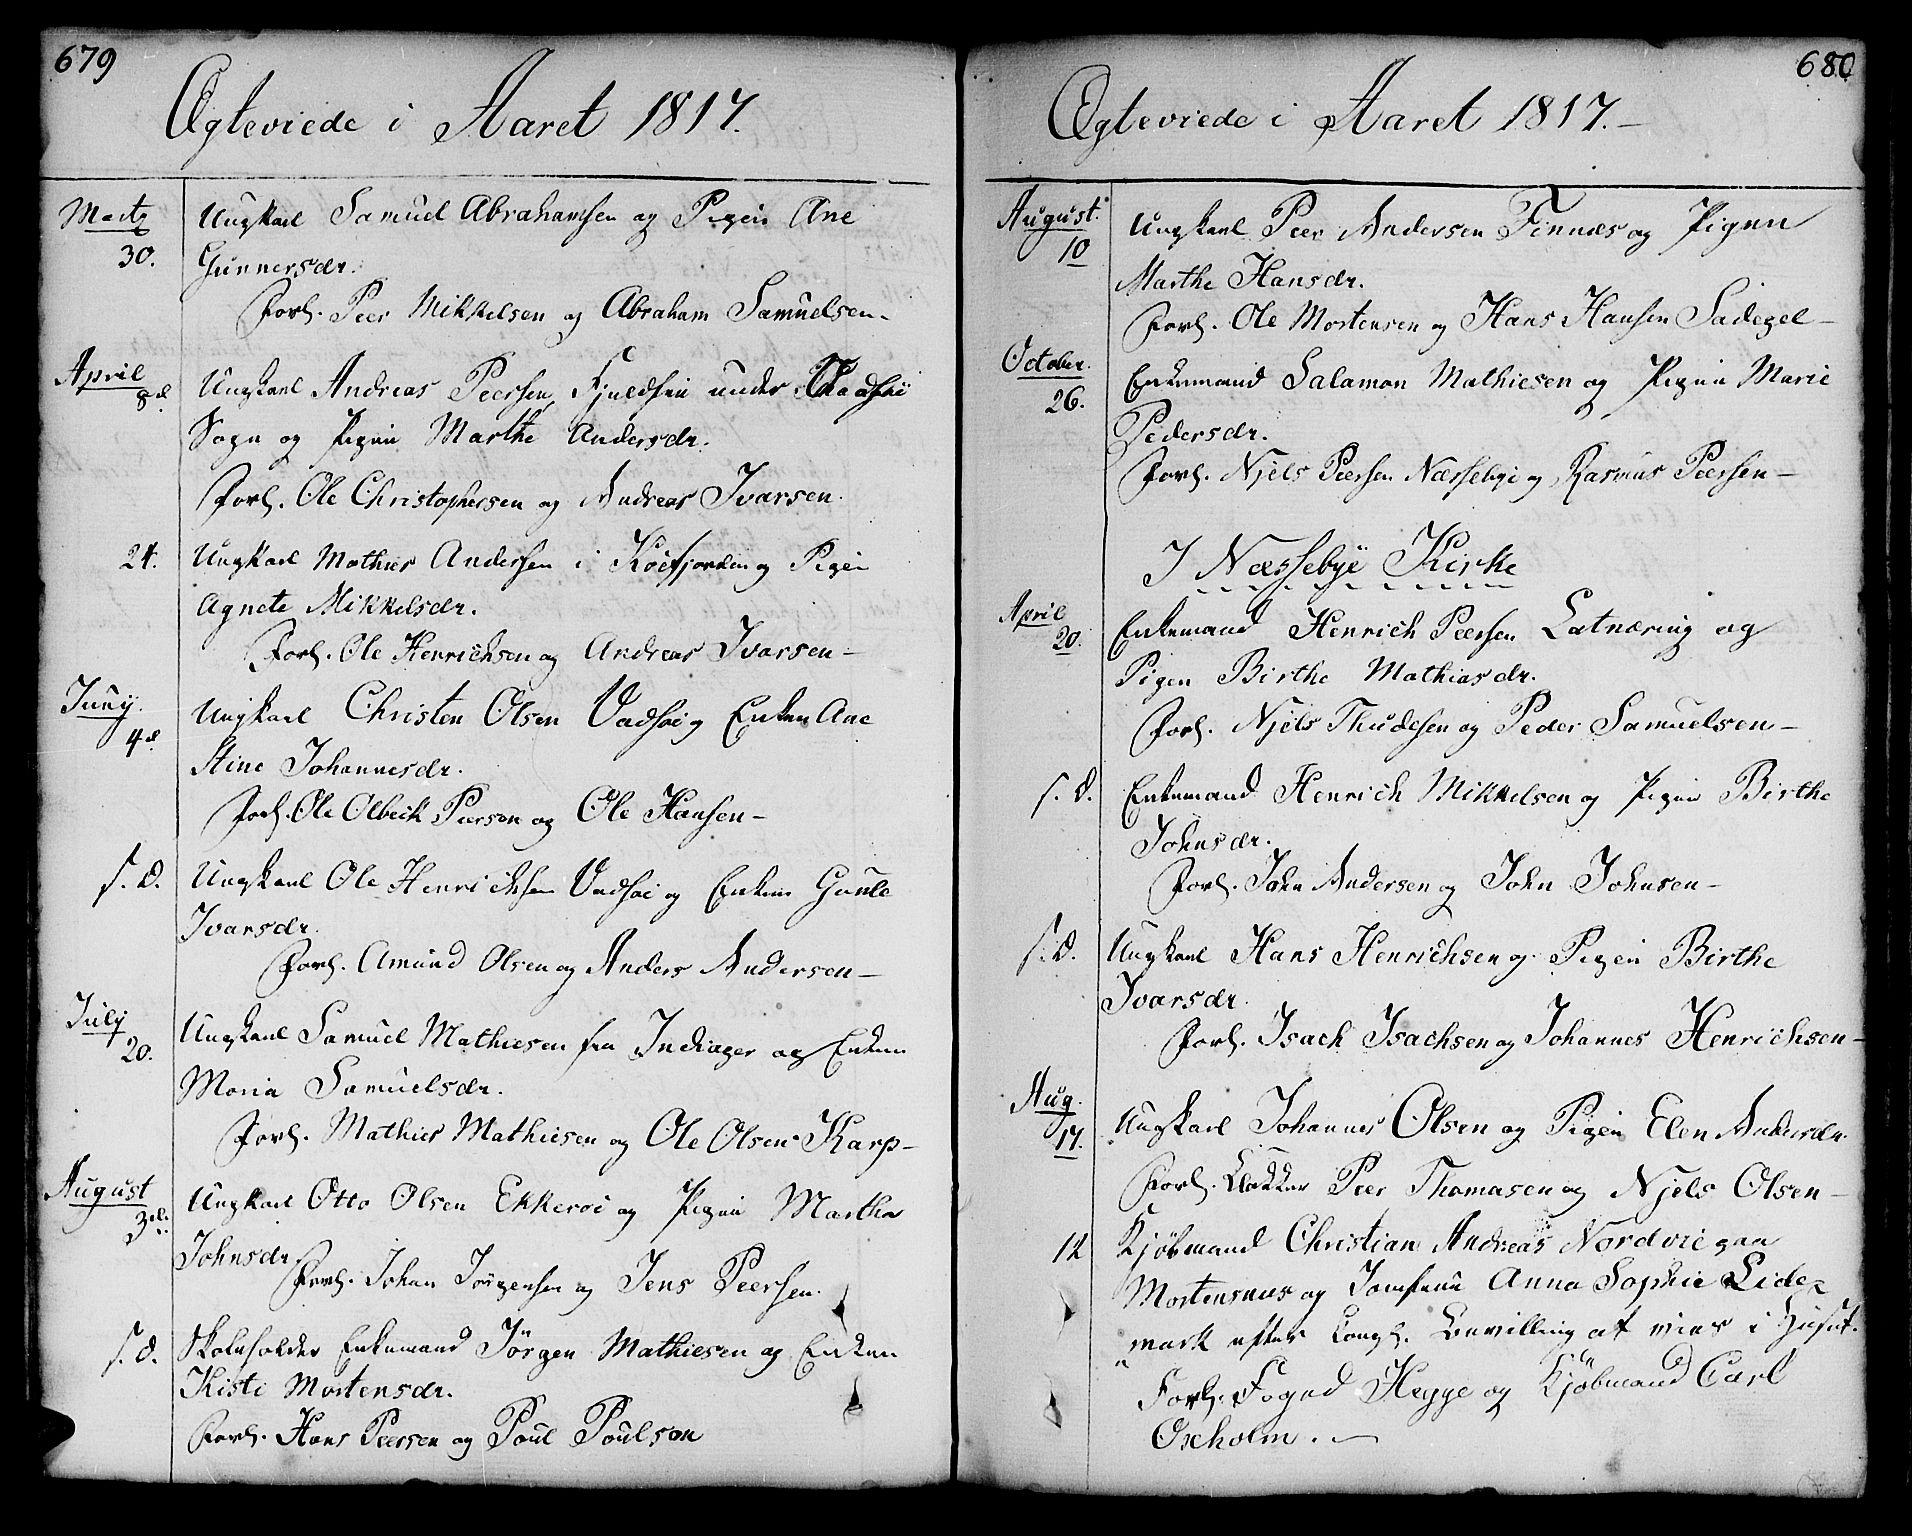 679
Ægteviede i Aaret 1817.
Martz
30.
Ungkarl Samuel Abrahamsen og Pigen Ane
Gunnersdr.
Forl. Peer Mikkelsen og Abraham Samuelsen.
April
8d.
Ungkarl Andreas Peersen, under
Sogn og Pigen Marthe Andersdr.
Forl. Ole Christophersen og Andreas Ivarsen.
24.
Ungkarl Mathies Andersen i Kiöfjorden og Pigen
Agnete Mikkelsdr.
Forl. Ole Henrichsen og Andreas Ivarsen –
Juny.
4d.
Ungkarl Christen Olsen Vadsöe og Enken Ane
Stine Johannesdr.
Forl. Ole Olbeck Peersen og Ole Hansen –
s. D.
Ungkarl Ole Henrichsen Vadsöe og Enken Gunle
Ivarsdr.
Forl. Amund Olsen og Anders Andersen –
July
20.
Ungkarl Samuel Mathiesen fra Indiager og Enken
Maria Samuelsdr.
Forl. Mathies Mathiesen og Ole Olsen Karp –
August
3d.
Ungkarl Otto Olsen Ekkeröe og Pigen Martha
Johnsdr.
Forl. Johan Jörgensen og Jens Peersen.
s. D.
Skoleholder Enkemand Jörgen Mathiesen og Enken
Kisti Mortensdr.
Forl. Hans Peersen og Poul Poulson
680
Ægteviede i Aaret 1817. –
August.
10
Ungkarl Peer Andersen Finnæs og Pigen
Marthe Hansdr.
Forl. Ole Mortensen og Hans Hansen Sadegel –
October.
26.
Enkemand Salamon Mathiesen og Pigen Marie
Pedersdr.
Forl. Njels Peersen Næssebye og Rasmus Peersen –
I Næssebye Kirke
April
20.
Enkemand Henrich Peersen Latnæring og
Pigen Birthe Mathiasdr.
Forl. Njels Thudesen og Peder Samuelsen –
s. D.
Enkemand Henrich Mikkelsen og Pigen Birthe
Johnsdr.
Forl. John Andersen og John Johnsen –
s. D.
Ungkarl Hans Henrichsen og Pigen Birthe
Ivarsdr.
Forl. Isach Isachsen og Johannes Henrichsen –
Aug.
17.
Ungkarl Johannes Olsen og Pigen Elen Andersdr.
Forl. Klokker Peer Thomasen og Njels Olsen –
12
Kjöbmand Christian Andreas Nordvie paa
Mortensnæs og Jomfrue Anna Sophie Lide-
mark efter Kongl. Bevilling at vies i Huset.
Forl. Foged Hegge og Kjöbmand Carl
Oxholm. –